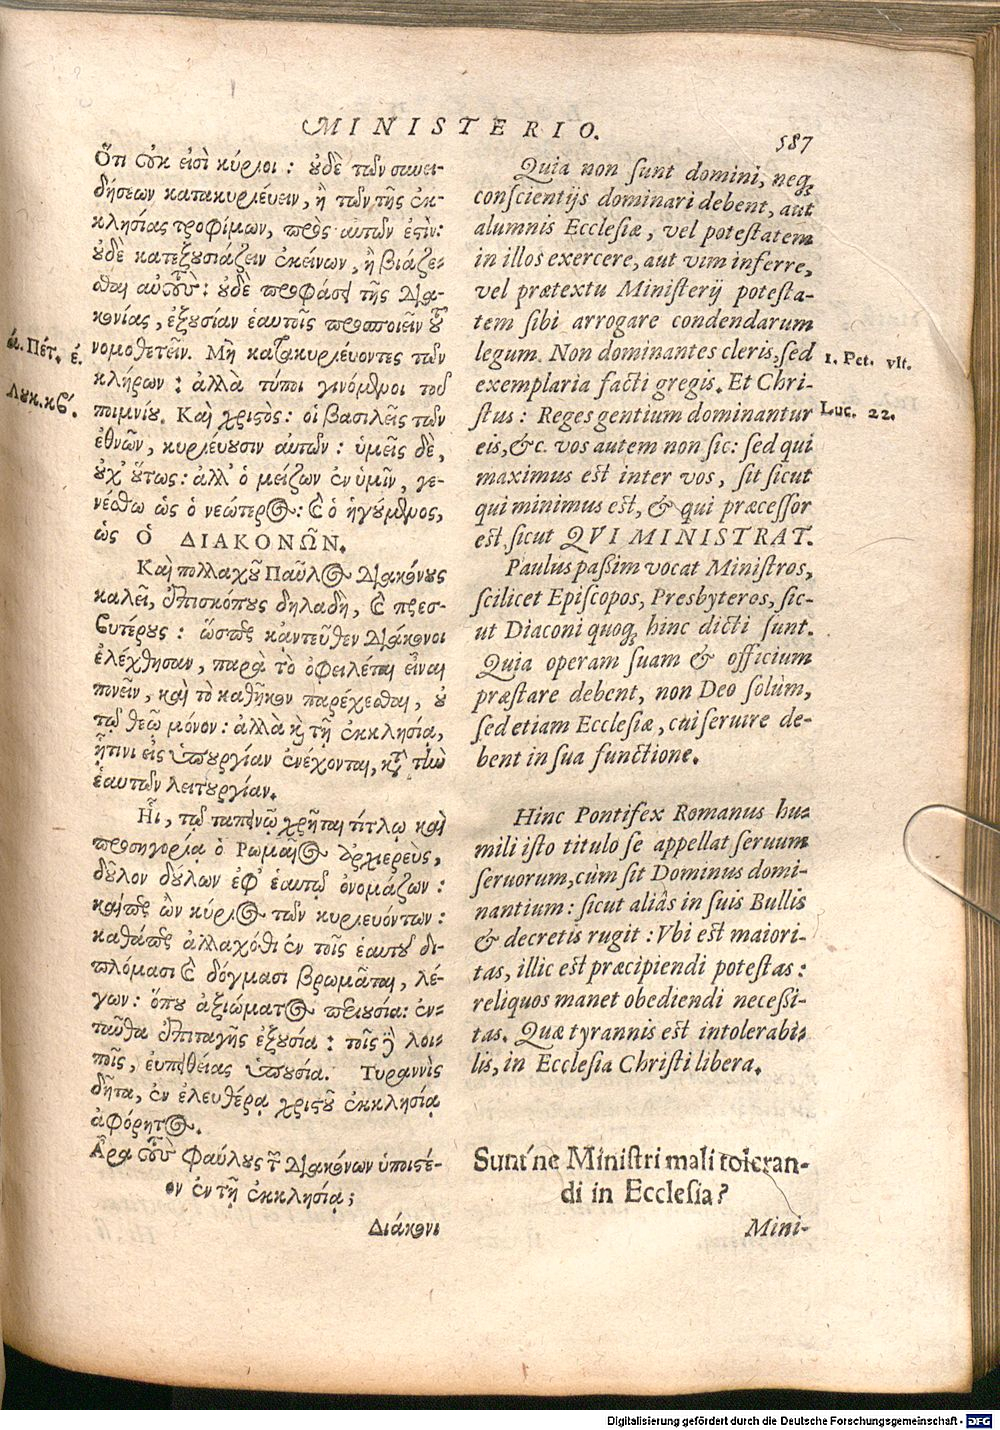 MINISTERIO.
587
Ὅτι οὐκ εἰσὶ κύριοι: οὐδὲ τῶν συνει-
δήσεων κατακυριεύειν, ἢ τῶν τῆς ἐκ-
κλησίας τροφίμων, πρὸς αὐτῶν ἐστὶν:
οὐδὲ κατεξουσιάζειν ἐκείνων, ἢ βιάζε-
σθαι αὐτούς: οὐδὲ προφάσει τῆς δια-
κονίας, ἐξουσίαν ἑαυτοῖς προσποιεῖν τοῦ
νομοθετεῖν. Μὴ κατακυριεύοντες τῶν
κλήρων: ἀλλὰ τύποι γινόμενοι τοῦ
ποιμνίου. Καὶ χριστὸς: οἱ βασιλεῖς τῶν
ἐθνῶν, κυριεύουσιν αὐτῶν: ὑμεῖς δὲ,
οὐχ οὕτως: ἀλλ' ὁ μείζων ἐν ὑμῖν, γε-
νέσθω ὡς ὁ νεώτερος: καὶ ὁ ἡγούμενος,
ὡς Ὁ ΔΙΑΚΟΝΩΝ.
Καὶ πολλαχοῦ Παῦλος διακόνους
καλεῖ, ἐπισκόπους δηλαδὴ, καὶ πρεσ-
βυτέρους: ὥσπερ κἀντεῦθεν διάκονοι
ἐλέχθησαν, παρὰ τὸ ὀφειλέται εἶναι
πονεῖν, καὶ τὸ καθῆκον παρέχεσθαι, οὐ
τῷ θεῷ μόνον: ἀλλὰ καὶ τῇ ἐκκλησίᾳ,
ᾗτινι εἰς ὑπουργίαν ἐνέχονται, κατὰ τὴν
ἑαυτῶν λειτουργίαν.
Ἧι, τῷ ταπεινῷ χρῆται τίτλῳ καὶ
προσηγορίᾳ ὁ Ρωμαῖος ἀρχιερεὺς,
δοῦλον δούλων ἐφ' ἑαυτῷ ὀνομάζων:
καίπερ ὢν κύριος τῶν κυριευόντων:
καθάπερ ἀλλαχόθι ἐν τοῖς ἑαυτοῦ δι-
πλόμασι καὶ δόγμασι βρωμᾶται, λέ-
γων: ὅπου ἀξιώματος περιουσία: ἐν-
ταῦθα ἐπιταγῆς ἐξουσία: τοῖς δὲ λοι-
ποῖς, εὐπειθείας ὑπουσία. Τυραννὶς
δῆτα, ἐν ἐλευθέρᾳ χριστοῦ ἐκκλησίᾳ
ἀφόρητος.
Ἆρα οὖν φαύλους τῶν διακόνων ὑποιστέ-
ον ἐν τῇ ἐκκλησίᾳ;
Διάκονοι
ά. Πέτ. έ.
Λουκ. κβ'.
Quia non sunt domini, neq;
conscientijs dominari debent, aut
alumnis Ecclesiæ, vel potestatem
in illos exercere, aut vim inferre,
vel prætextu Ministerij potesta-
tem sibi arrogare condendarum
legum. Non dominantes cleris, sed
exemplaria facti gregis. Et Chri-
stus: Reges gentium dominantur
eis, &c. vos autem non sic: sed qui
maximus est inter vos, sit sicut
qui minimus est, & qui præcessor
est sicut QVI MINISTRAT.
Paulus passim vocat Ministros,
scilicet Episcopos, Presbyteros, sic-
ut Diaconi quoq; hinc dicti sunt.
Quia operam suam & officium
præstare debent, non Deo solùm,
sed etiam Ecclesiæ, cui seruire de-
bent in sua functione.
Hinc Pontifex Romanus hu-
mili isto titulo se appellat seruum
seruorum, cùm sit Dominus domi-
nantium: sicut aliâs in suis Bullis
& decretis rugit: Vbi est maiori-
tas, illic est præcipiendi potestas:
reliquos manet obediendi necessi-
tas. Quæ tyrannis est intolerabi-
lis, in Ecclesia Christi libera.
Sunt'ne Ministri mali toleran-
di in Ecclesia?
Mini-
1. Pet. vlt.
Luc. 22.
Digitalisierung gefördert durch die Deutsche Forschungsgemeinschaft - DFG